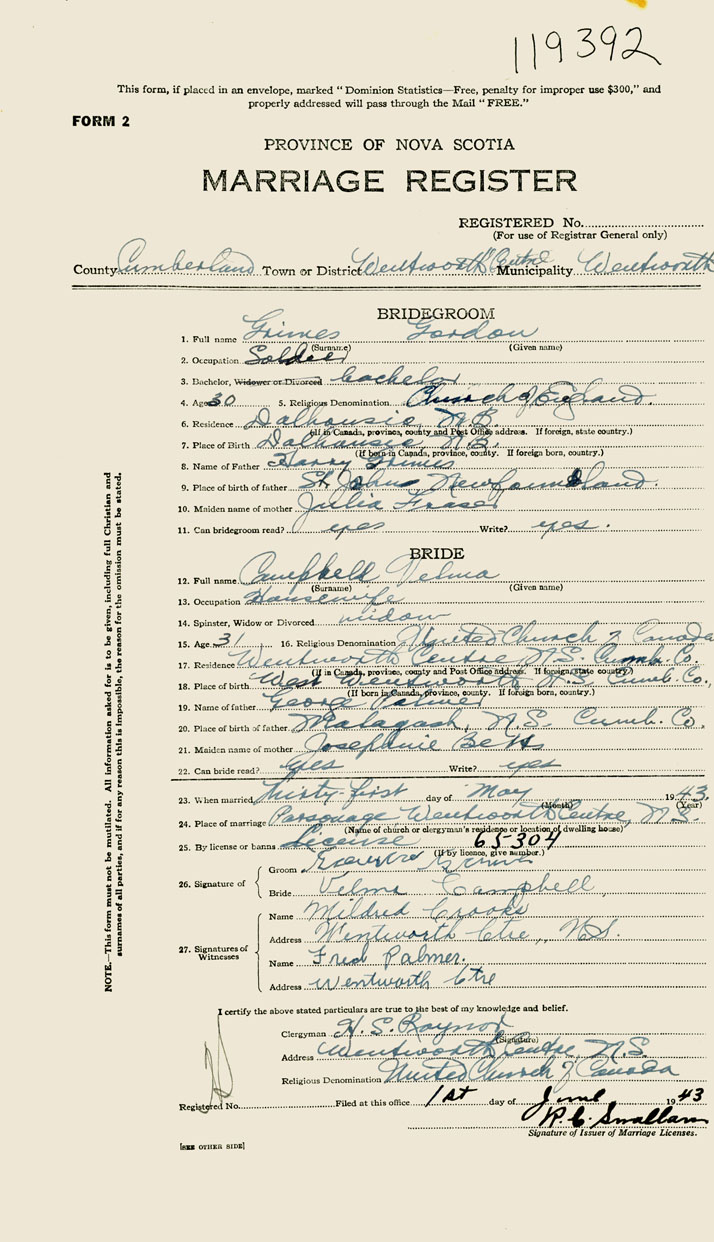 119392
This form, if placed in an envelope, marked "Dominion Statistics—Free, penalty for improper use $300," and
properly addressed will pass through the Mail "FREE."
FORM 2
PROVINCE OF NOVA SCOTIA
MARRIAGE REGISTER
REGISTERED No.
(For use of Registrar General only)
County Cumberland Town or District Wentworth Centre Municipality Wentworth
BRIDEGROOM
1. Full name Grimes Gordon
(Surname) (Given name)
2. Occupation Soldier
3. Bachelor, Widower or Divorced bachelor
4. Age 30 5. Religious Denomination Church of England.
6. Residence Dalhousie N.B.
(If in Canada, province, county and Post Office address. If foreign, state country.)
7. Place of Birth Dalhousie, N.B.
(If born in Canada, province, county. If foreign born, country.)
8. Name of Father Harry Grimes
9. Place of birth of father St Johns Newfoundland.
10. Maiden name of mother Julia Fraser
11. Can bridegroom read? yes Write? yes.
BRIDE
12. Full name Campbell Velma
(Surname) (Given name)
13. Occupation Housewife
14. Spinster, Widow or Divorced widow
15. Age 31 16. Religious Denomination United Church of Canada
17. Residence Wentworth Centre, N.S. Cumb. Co.
(If in Canada, province, county and Post Office address. If foreign, state country.)
18. Place of birth West Wentworth N.S. Cumb. Co.,
(If born in Canada, province, county. If foreign born, country.)
19. Name of father George Palmer
20. Place of birth of father Malagash, N.S. Cumb. Co.
21. Maiden name of mother Josephine Betts
22. Can bride read? yes Write? yes
23. When married thirty-first day of May 1943,
(Month) (Year)
24. Place of marriage Parsonage Wentworth Centre, N.S.
(Name of church or clergyman's residence or location of dwelling house)
25. By license or banns License 65304
(If by licence, give number.)
26. Signature of Groom Grimes
Bride Velma Campbell
27. Signatures of Witnesses
Name Mildred Crooks
Address Wentworth Ctre, N.S.
Name Fred Palmer.
Address Wentworth Ctre
I certify the above stated particulars are true to the best of my knowledge and belief.
Clergyman H. S. Raynor
(Signature)
Address Wentworth Centre, N.S.
Religious Denomination United Church of Canada
Registered No. Filed at this office 1st day of June 1943
R. C. Smallam
Signature of Issuer of Marriage Licenses.
[SEE OTHER SIDE]
NOTE.—This form must not be mutilated. All information asked for is to be given, including full Christian and
surnames of all parties, and if for any reason this is impossible, the reason for the omission must be stated.